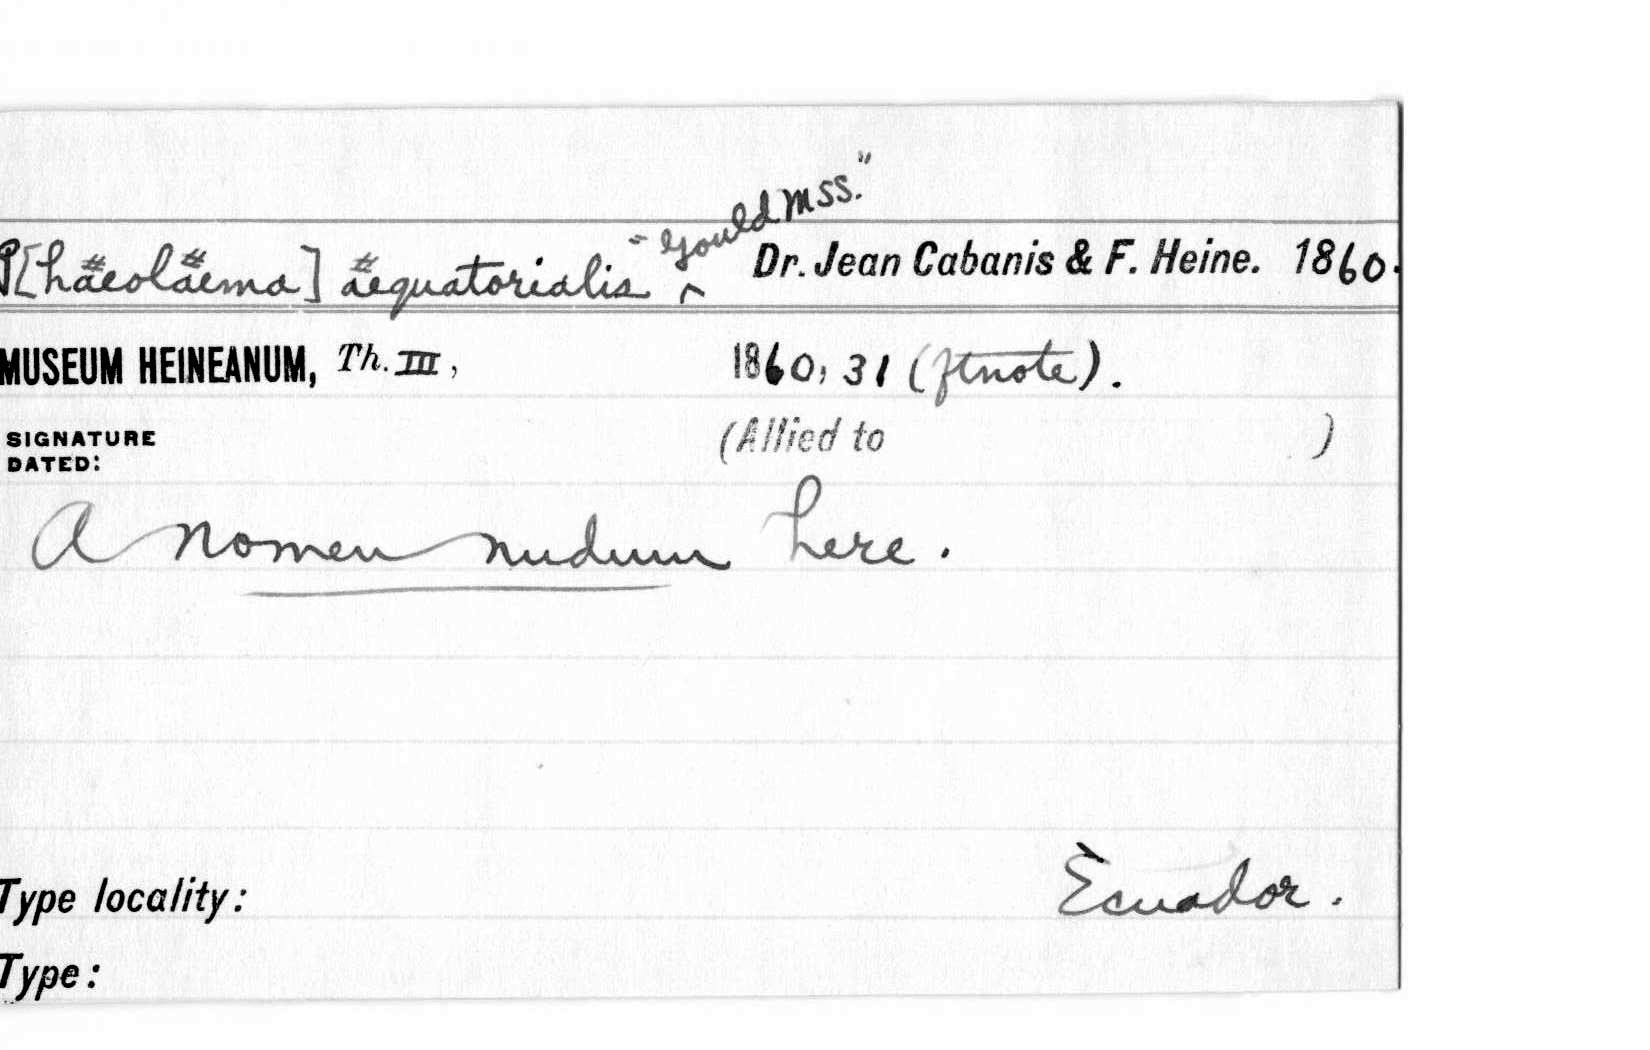 P[häeoläema] äequatorialis "Gould MSS." Dr. Jean Cabanis & F. Heine. 1860.
MUSEUM HEINEANUM, Th. III, 1860, 31 (ftnote).
(Allied to )
SIGNATURE
DATED:
A nomen nudum here.
Type locality: Ecuador.
Type: